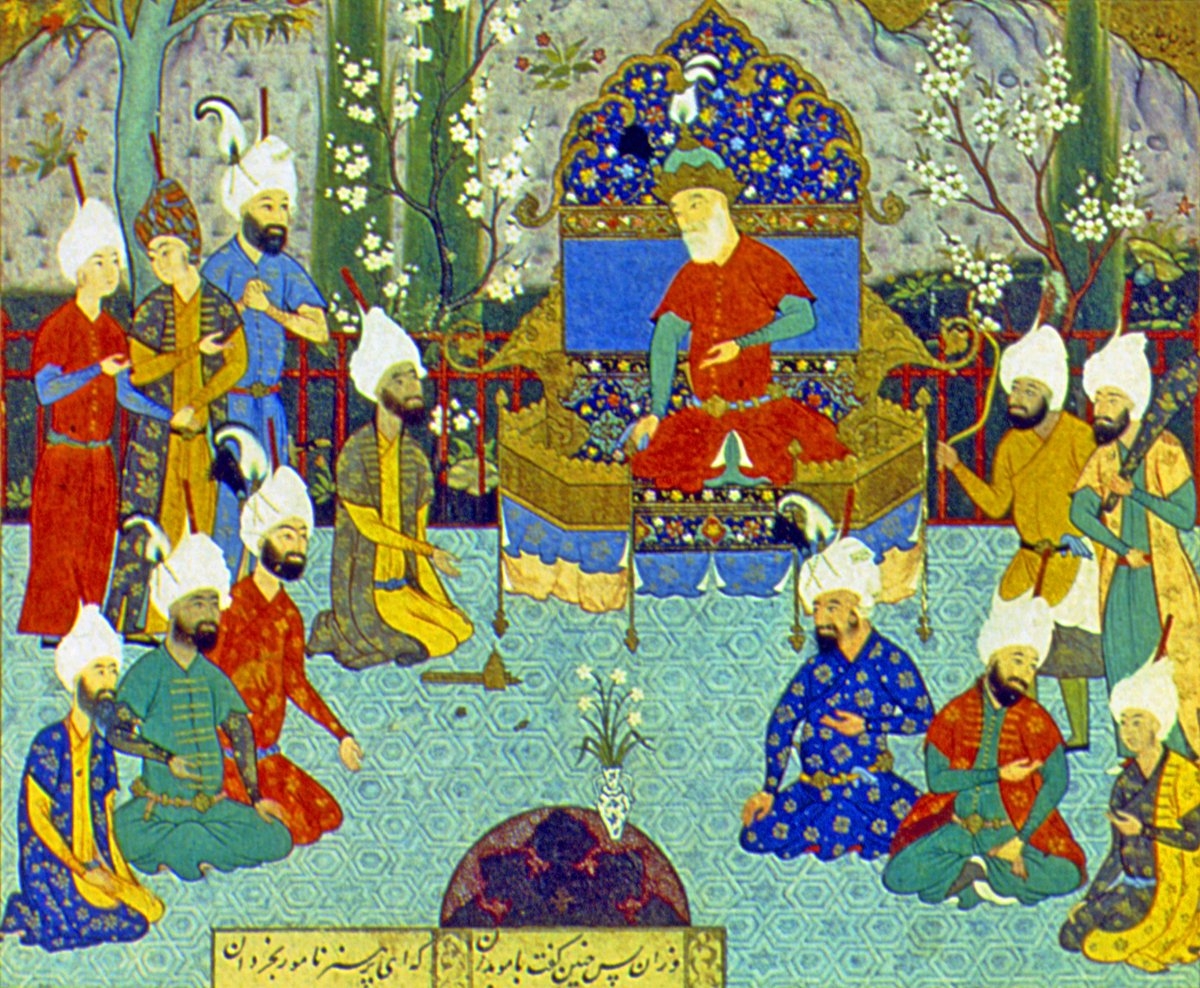 وزان پس چنین گفت با موبدان
که ای پرهنر نامور بخردان